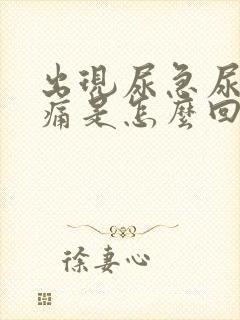 出現尿急尿
痛是怎麼回
徐妻心